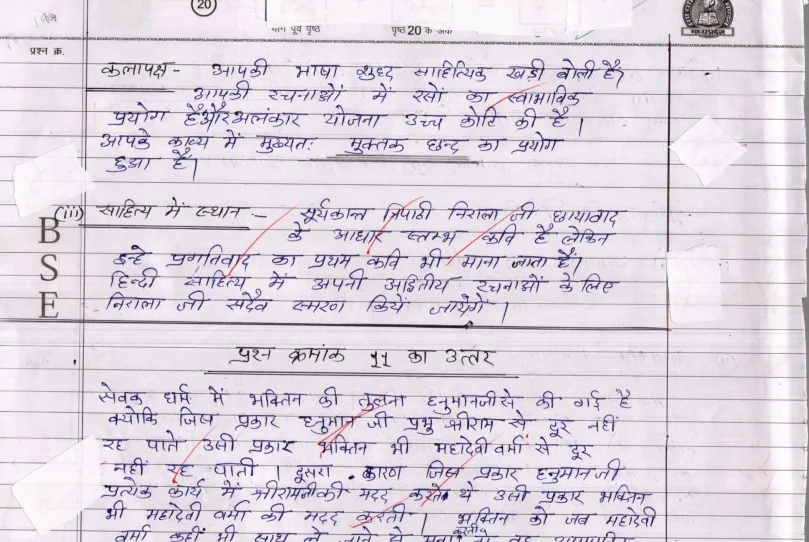 20
पृष्ठ 20 के अंक
मध्यप्रदेश
प्रश्न क्र.
कलापक्ष - आपकी भाषा शुध्द साहित्यिक खड़ी बोली है,
आपकी रचनाओं में रसों का स्वाभाविक
प्रयोग है और अलंकार योजना उच्च कोटि की है |
आपके काव्य में मुख्यतः मुक्तक छन्द का प्रयोग
हुआ है |
(iii) साहित्य में स्थान :- सूर्यकान्त त्रिपाठी निराला जी छायावाद
B
के आधार स्तम्भ कवि है लेकिन
S
इन्हे प्रगतिवाद का प्रथम कवि भी माना जाता है |
हिन्दी साहित्य में अपनी अद्वितीय रचनाओं के लिए
E
निराला जी सदैव स्मरण कियें जायेगें |
प्रश्न क्रमांक 11 का उत्तर
सेवक धर्म में भक्तिन की तुलना हनुमानजी से की गई है
क्योकि जिस प्रकार हनुमान जी प्रभु श्रीराम से दूर नहीं
रह पाते उसी प्रकार भक्तिन भी महादेवी वर्मा से दूर
नहीं रह पाती | दूसरा कारण जिस प्रकार हनुमान जी
प्रत्येक कार्य में श्रीरामजी की मदद करते थे उसी प्रकार भक्तिन
भी महादेवी वर्मा की मदद करती | भक्तिन को जब महादेवी
वर्मा कहीं भी साथ ले जाने से मना करती तो वह